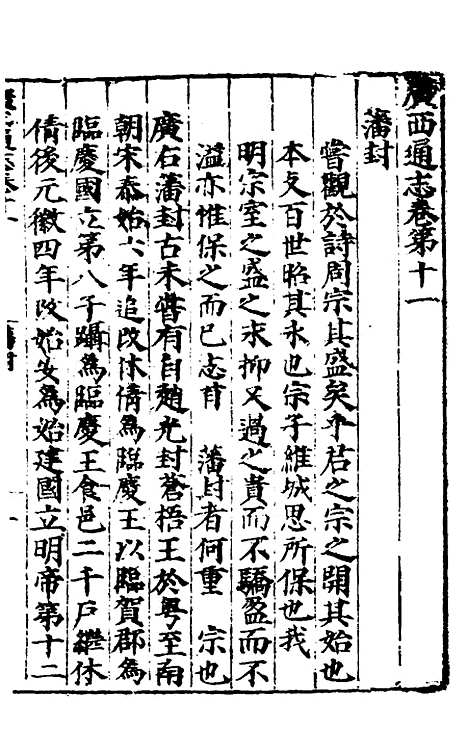 廣西通志卷第十一
藩封
嘗觀於詩周宗其盛矣乎君之宗之開其始也
本支百世昭其永也宗子維城思所保也我
明宗室之盛之求抑又過之貴而不驕盈而不
溢亦惟保之而已志首 藩封者何重 宗也
廣右藩封古未嘗有自趙光封蒼梧王於粤至南
朝宋泰始六年追改休倩為臨慶王以臨賀郡為
臨慶國立第八子躡為臨慶王食邑二千戶繼休
倩後元徽四年改始安為始建國立明帝第十二